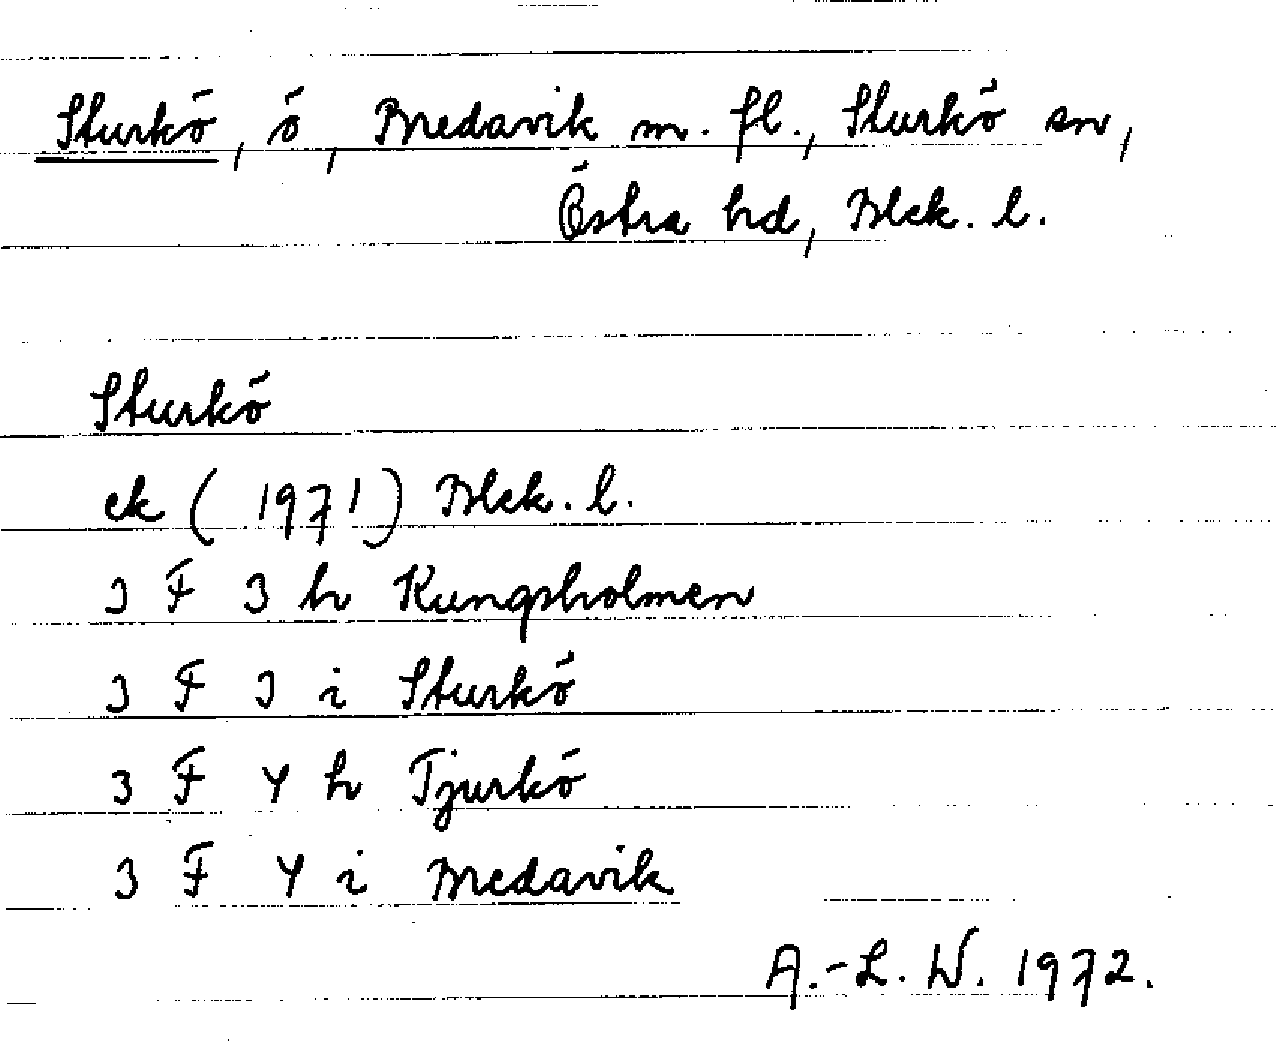 Sturkö, ö, Bredavik m. fl., Sturkö sn,
Östra hd, Blek. l.
Sturkö
ek (1971) Blek. l.
3 F 3 h Kungsholmen
3 F 3 i Sturkö
3 F 4 h Tjurkö
3 F 4 i Bredavik
A.-L. W. 1972.